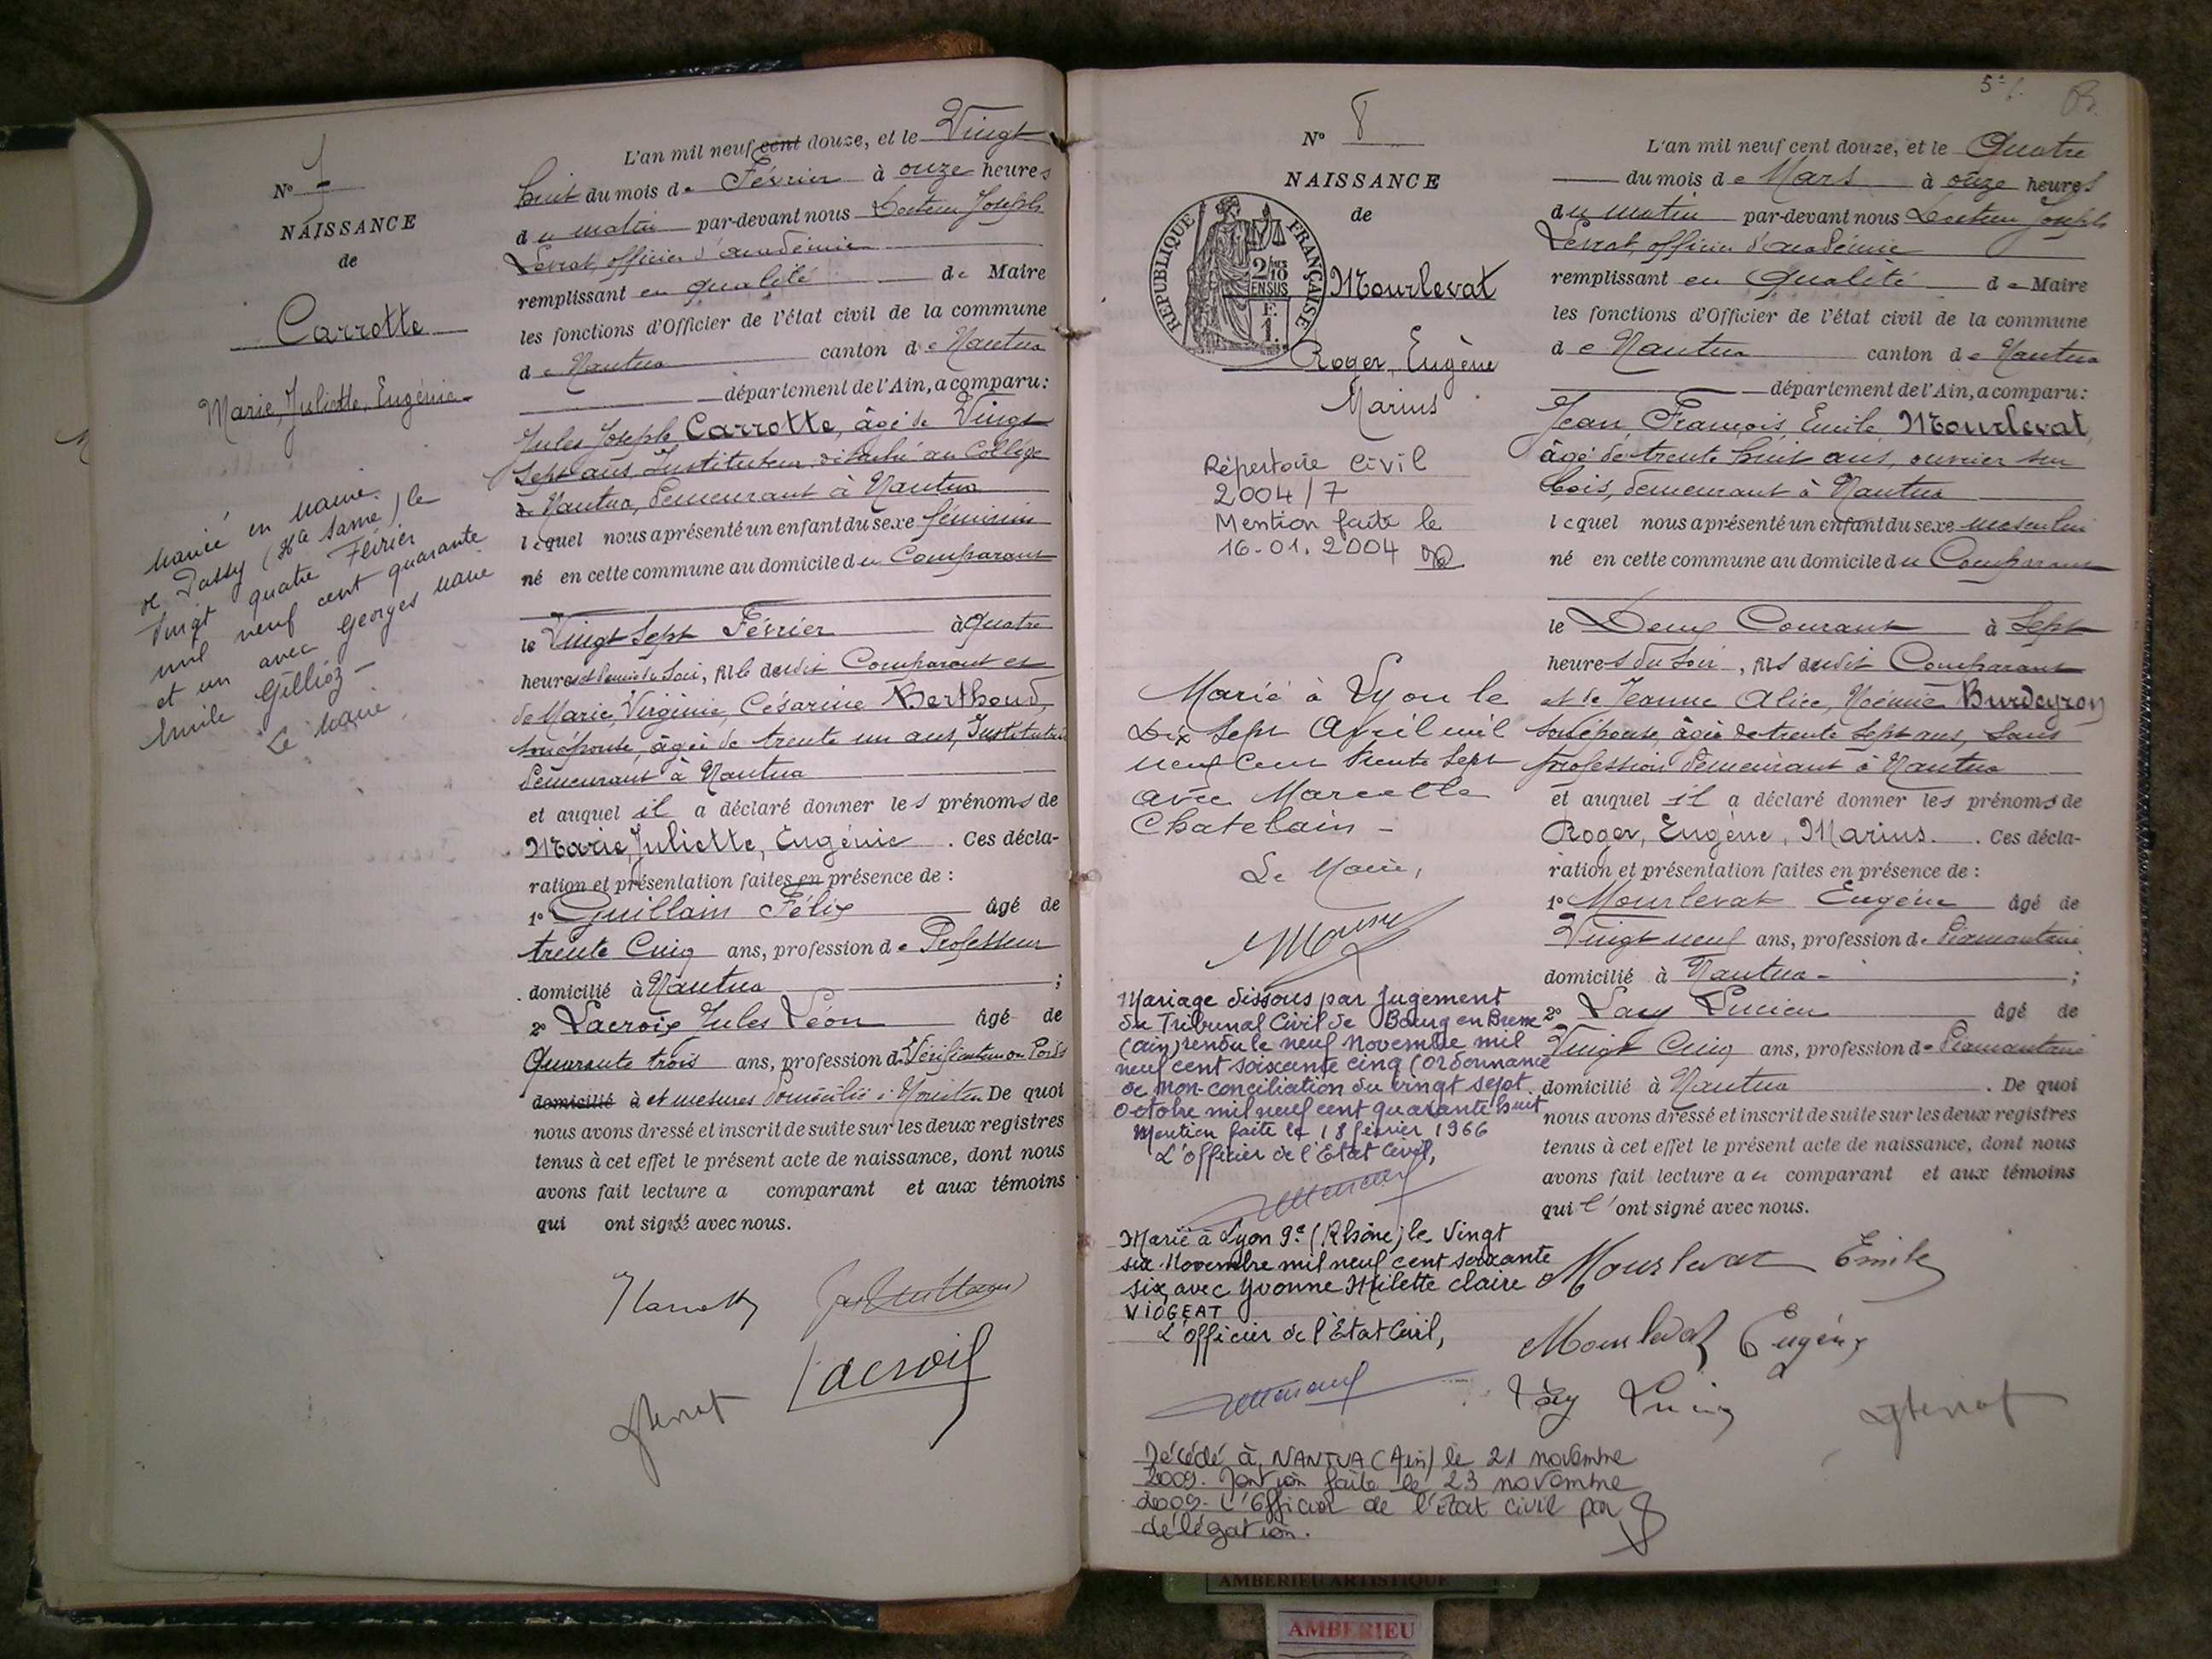 N° 7
NAISSANCE
de
Carrotte
Marie, Juliette, Eugénie
Marié en mairie
de Passy (Hte Savoie) le
vingt quatre Février
mil neuf cent quarante
et un avec Georges Marie
Emile Gillioz
Le Maire
L'an mil neuf cent douze, et le Vingt
huit du mois de Février à onze heures
du matin par-devant nous Docteur Joseph
Levrat, officier d'académie
remplissant en qualité de Maire
les fonctions d'Officier de l'état civil de la commune
de Nantua canton de Nantua
département de l'Ain, a comparu:
Jules Joseph Carrotte, âgé de Vingt
Sept ans, Instituteur détaché au Collège
de Nantua, demeurant à Nantua
lequel nous a présenté un enfant du sexe féminin
né en cette commune au domicile du Comparant
le Vingt Sept Février à Quatre
heures et demie du Soir, fils dudit Comparant et
de Marie, Virginie, Césarine Berthoud,
son épouse, âgée de trente un ans, Institutrice
demeurant à Nantua
et auquel il a déclaré donner les prénoms de
Marie, Juliette, Eugénie. Ces décla-
ration et présentation faites en présence de :
1° Guillain Félix âgé de
trente Cinq ans, profession de Professeur
domicilié à Nantua ;
2° Lacroix Jules Léon âgé de
Quarante trois ans, profession de Vérificateur Poids
domicilié à et mesures domicilié à Nantua De quoi
nous avons dressé et inscrit de suite sur les deux registres
tenus à cet effet le présent acte de naissance, dont nous
avons fait lecture a comparant et aux témoins
qui ont signé avec nous.
Lacroix
5
N° 8
NAISSANCE
de
RÉPUBLIQUE FRANÇAISE
2/10
EN SUS
F.
1.
Mourlevat
Roger, Eugène
Marius
Répertoire Civil
2004/7
Mention faite le
16-01.2004
Marié à Lyon le
Dix Sept Avril mil
neuf Cent trente Sept
avec Marcelle
Chatelain -
Le Maire,
Mariage dissous par Jugement
du Tribunal Civil de Bourg en Bresse
(Ain) rendu le neuf Novembre mil
neuf cent soixante cinq (Ordonnance
de non-conciliation du vingt sept
Octobre mil neuf cent quarante huit
Mention faite le 18 février 1966
L'officier de l'Etat Civil,
Marié à Lyon 9e (Rhône) le Vingt
six Novembre mil neuf cent soixante
six avec Yvonne Milette Claire
VIOGEAT
L'officier de l'Etat Civil,
Décédé à NANTUA (Ain) le 21 novembre
2009. Mention faite le 23 novembre
2009. L'Officier de l'état civil par
délégation.
L'an mil neuf cent douze, et le Quatre
du mois de Mars à onze heures
du matin par-devant nous Docteur Joseph
Levrat, officier d'académie
remplissant en qualité de Maire
les fonctions d'Officier de l'état civil de la commune
de Nantua canton de Nantua
département de l'Ain, a comparu:
Jean, François, Emile Mourlevat,
âgé de trente huit ans, ouvrier sur
bois, demeurant à Nantua
lequel nous a présenté un enfant du sexe masculin
né en cette commune au domicile du Comparant
le Deux Courant à Sept
heures du soir, fils dudit Comparant
et de Jeanne Alice, Noémie Burdeyron
son épouse, âgée de trente Sept ans, Sans
profession demeurant à Nantua
et auquel il a déclaré donner les prénoms de
Roger, Eugène, Marius. Ces décla-
ration et présentation faites en présence de :
1° Mourlevat Eugène âgé de
Vingt neuf ans, profession de Diamantaire
domicilié à Nantua ;
2° Lay Lucien âgé de
Vingt Cinq ans, profession de Diamantaire
domicilié à Nantua. De quoi
nous avons dressé et inscrit de suite sur les deux registres
tenus à cet effet le présent acte de naissance, dont nous
avons fait lecture au comparant et aux témoins
qui l'ont signé avec nous.
Mourlevat Emile
Mourlevat Eugène
AMBERIEU ARTISTIQUE
AMBERIEU